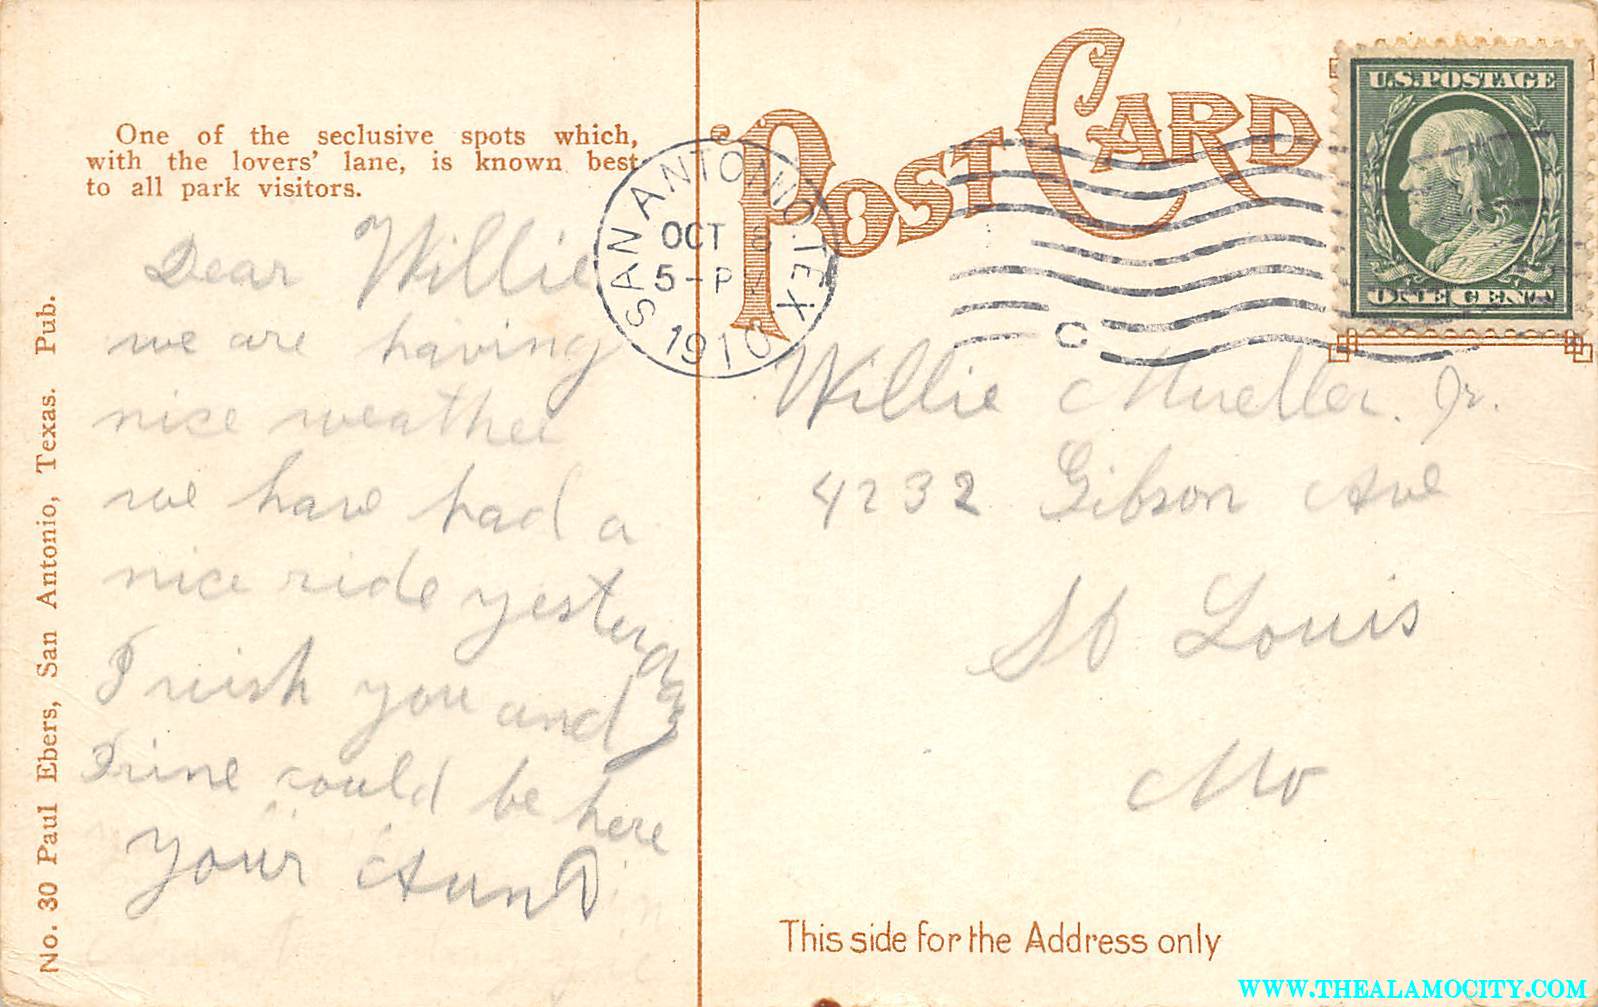 One of the seclusive spots which,
with the lovers' lane, is known best
to all park visitors.
No. 30 Paul Ebers, San Antonio, Texas. Pub.
Dear Willie
we are having
nise weather
we have had a
nice ride yesterday
I wish you and
could be here
your Aunt
POST CARD
SAN ANTONIO, TEX.
OCT
5-PM
1910
C
U.S. POSTAGE
ONE CENT
Willie Mueller. Jr.
4232 Gibson Ave
St Louis
Mo
This side for the Address only
WWW.THEALAMOCITY.COM